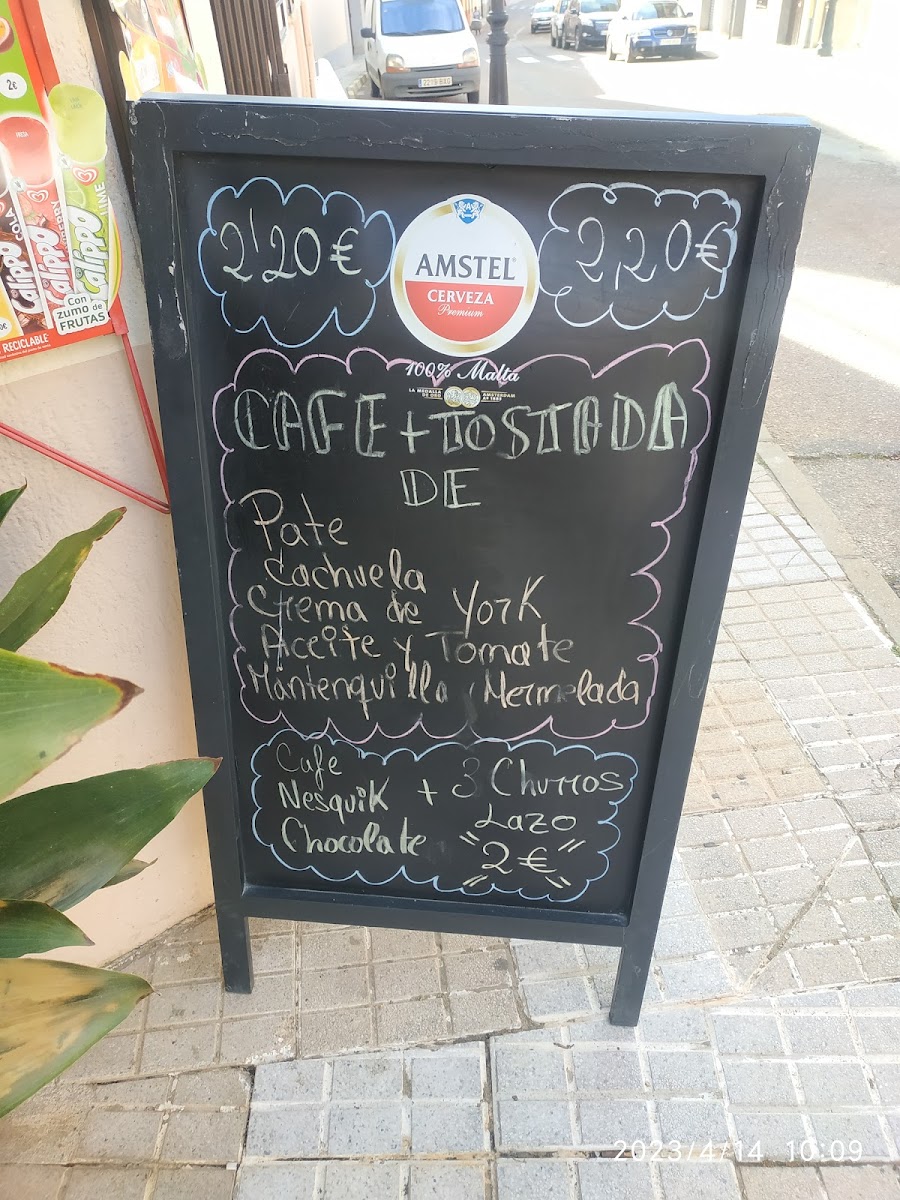 2€
COLA
Calippo
FRESA
Calippo
LIMA
LIMÓN
Calippo
LIME
Con
zumo de
FRUTAS
RECICLABLE
2'20€
AMSTEL
CERVEZA
Premium
100% Malta
LA MEDALLA
DE ORO
AMSTERDAM
2,20€
CAFE + TOSTADA
DE
Pate
Cachuela
Crema de York
Aceite y Tomate
Mantenquilla y Mermelada
Cafe
Nesquik + 3 Churros
Chocolate Lazo
"2€"
2023/4/14 10:09